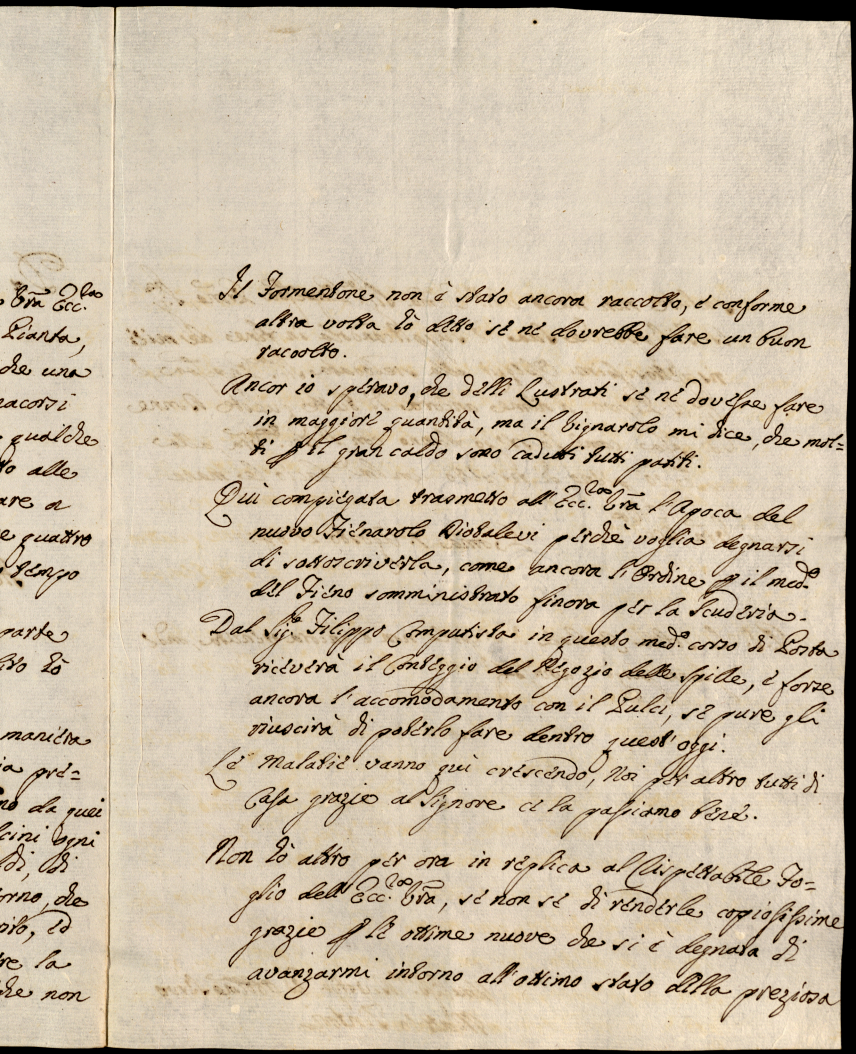 Vr̃a Ecc.za
Pianta,
che una
nacorsi
qualche
to alle
are a
e quattro
tempo
parte
lito hò
maniera
ia pre=
no da quei
lcini ogni
ldi, di
orno, che
ed
re la
che non
Il Formentone non è stato ancora raccolto, e conforme
altra volta hò detto se ne dovrebbe fare un buon
racolto.
Ancor io speravo, che delli Lustrati se ne dovesse fare
in maggiore quantità, ma il Vignarolo mi dice, che mol=
ti ꝑ il gran caldo sono caduti tutti patiti.
Quì compiegata trasmetto all'Ecc.za Vr̃a l'Apoca del
nuovo Fienarolo Diotalevi perchè voglia degnarsi
di sottoscriverla, come ancora l'Ordine ꝑ il med.o
del Fieno somministrato finora per la Scuderia.
Dal Sig.e Filippo Computista in questo med.o corso di Posta
riceverà il Conteggio del Negozio delle Spille, e forse
ancora l'accomodamento con il Pulci, se pure gli
riuscirà di poterlo fare dentro quest'oggi.
Le Malatie vanno quì crescendo, Noi per altro tutti di
Casa grazie al Signore ce la passiamo bene.
Non hò altro per ora in replica al Rispettabile Fo=
glio dell'Ecc.za Vr̃a, se non se di renderle copiosissime
grazie ꝑ le ottime nuove che si è degnata di
avanzarmi intorno all'ottimo stato della preziosa